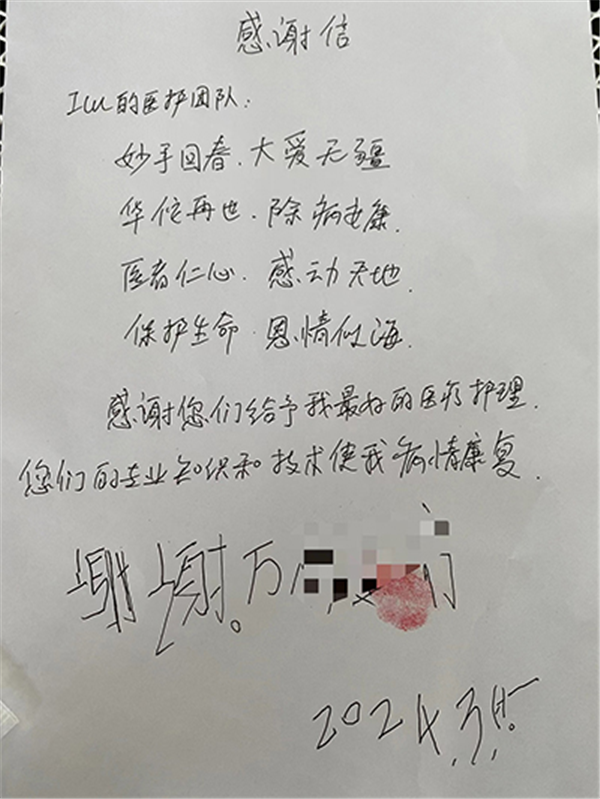 感谢信
ICU的医护团队：
妙手回春．大爱无疆
华佗再世．除病安康．
医者仁心．感动天地．
保护生命．恩情似海．
感谢您们给予我最好的医疗护理．
您们的专业知识和技术使我病情康复．
谢谢．万
2024.3.